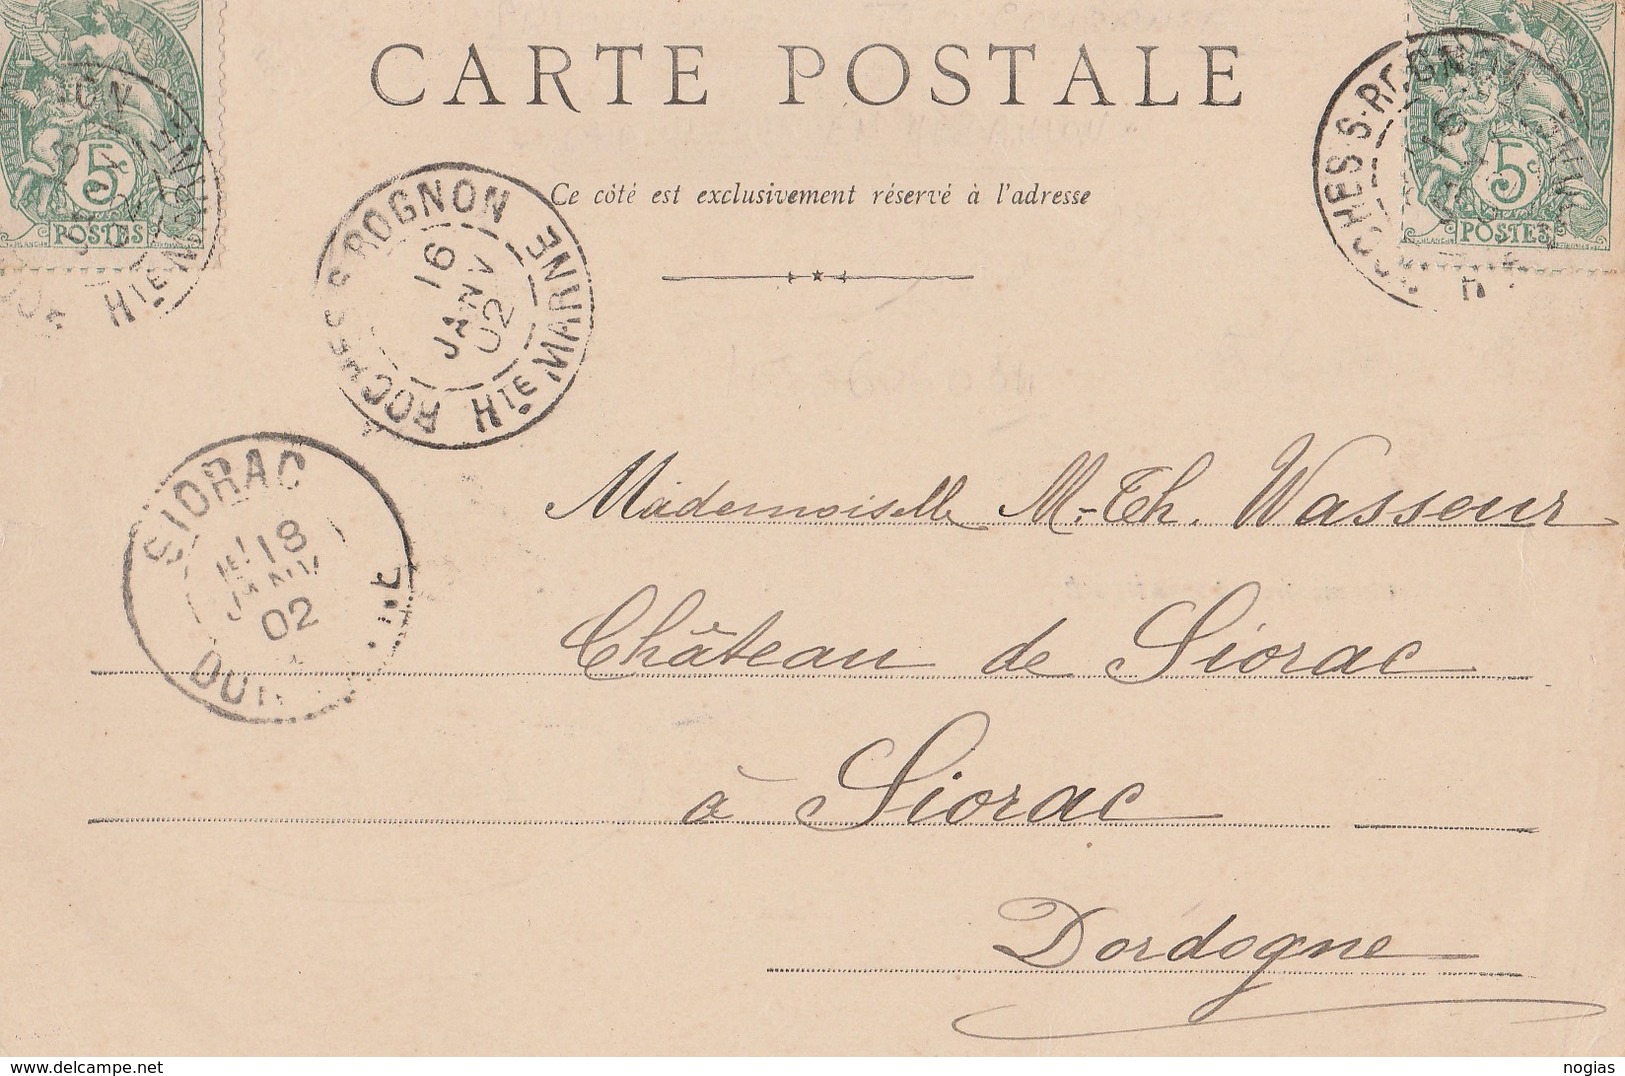 CARTE POSTALE
Ce côté est exclusivement réservé à l'adresse
5
POSTES
5c
POSTES
ROCHES S. ROGNON
16
JANV
02
HTE MARNE
SIORAC
18
JANV
02
Mademoiselle M-Th. Wasseur
Château de Siorac
à Siorac
Dordogne
www.delcampe.net
nogias